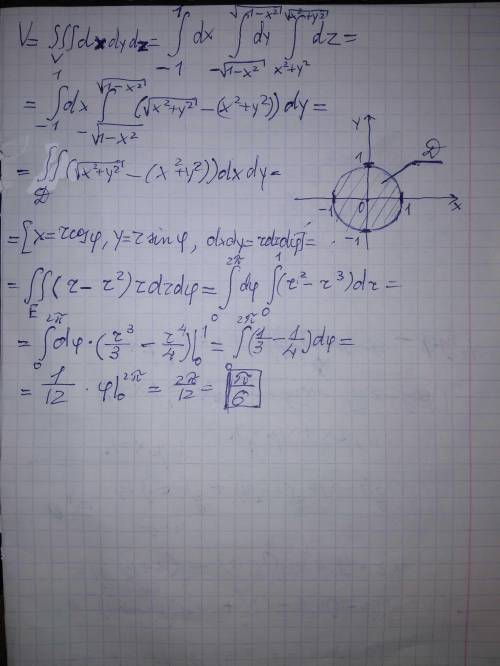 V = ∭_V dx dy dz = ∫_{-1}^{1} dx ∫_{-√(1-x²)}^{√(1-x²)} dy ∫_{x²+y²}^{√(x²+y²)} dz =
= ∫_{-1}^{1} dx ∫_{-√(1-x²)}^{√(1-x²)} (√(x²+y²) - (x²+y²)) dy =
= ∬_D (√(x²+y²) - (x²+y²)) dx dy =
= [x = r cos φ, y = r sin φ, dx dy = r dr dφ] =
= ∬_E (r - r²) r dr dφ = ∫_0^{2π} dφ ∫_0^1 (r² - r³) dr =
= ∫_0^{2π} dφ · (r³/3 - r⁴/4)|_0^1 = ∫_0^{2π} (1/3 - 1/4) dφ =
= 1/12 · φ|_0^{2π} = 2π/12 = π/6
Y
D
1
-1 0 1 X
-1